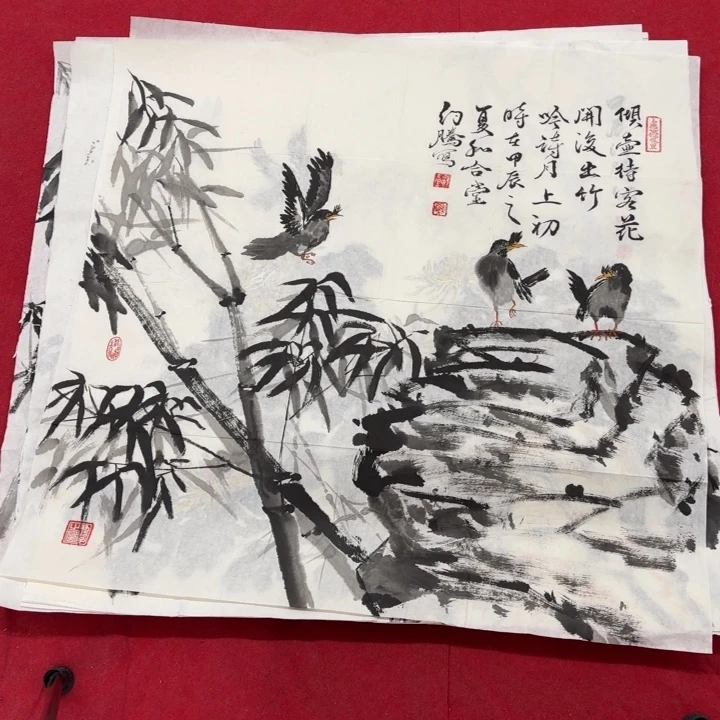 倾壶待客花
开后出竹
吟诗月上初
时在甲辰之
夏弘合堂
幻腾写